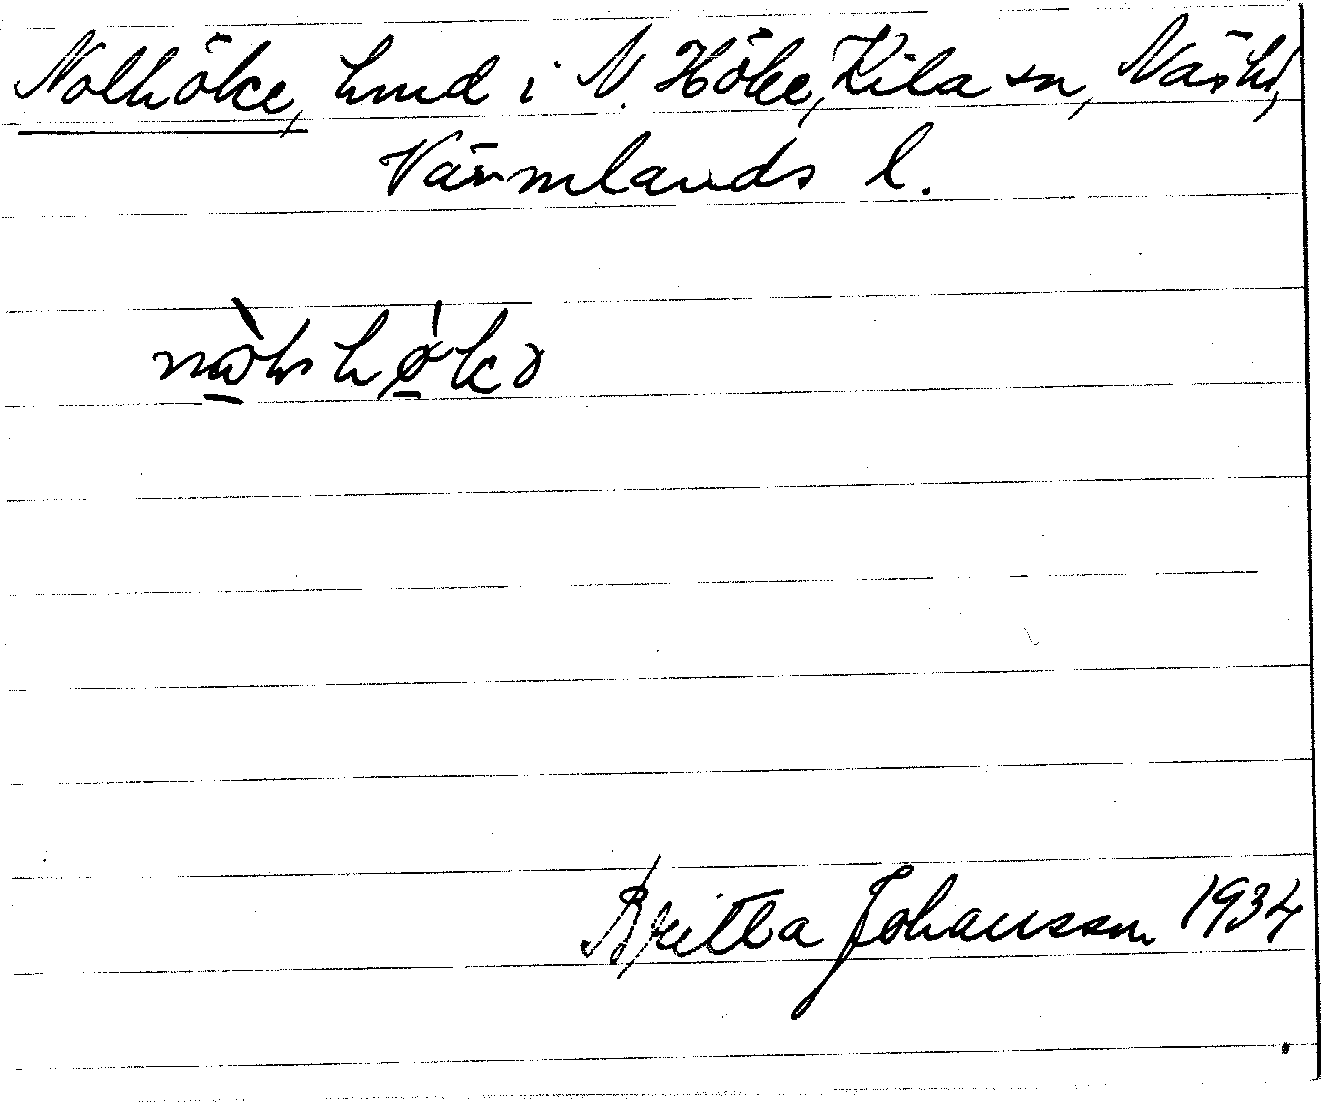 Nolhöke, hmd i N. Höke, Kila sn, Näshd,
Värmlands l.
Britta Johansson 1934